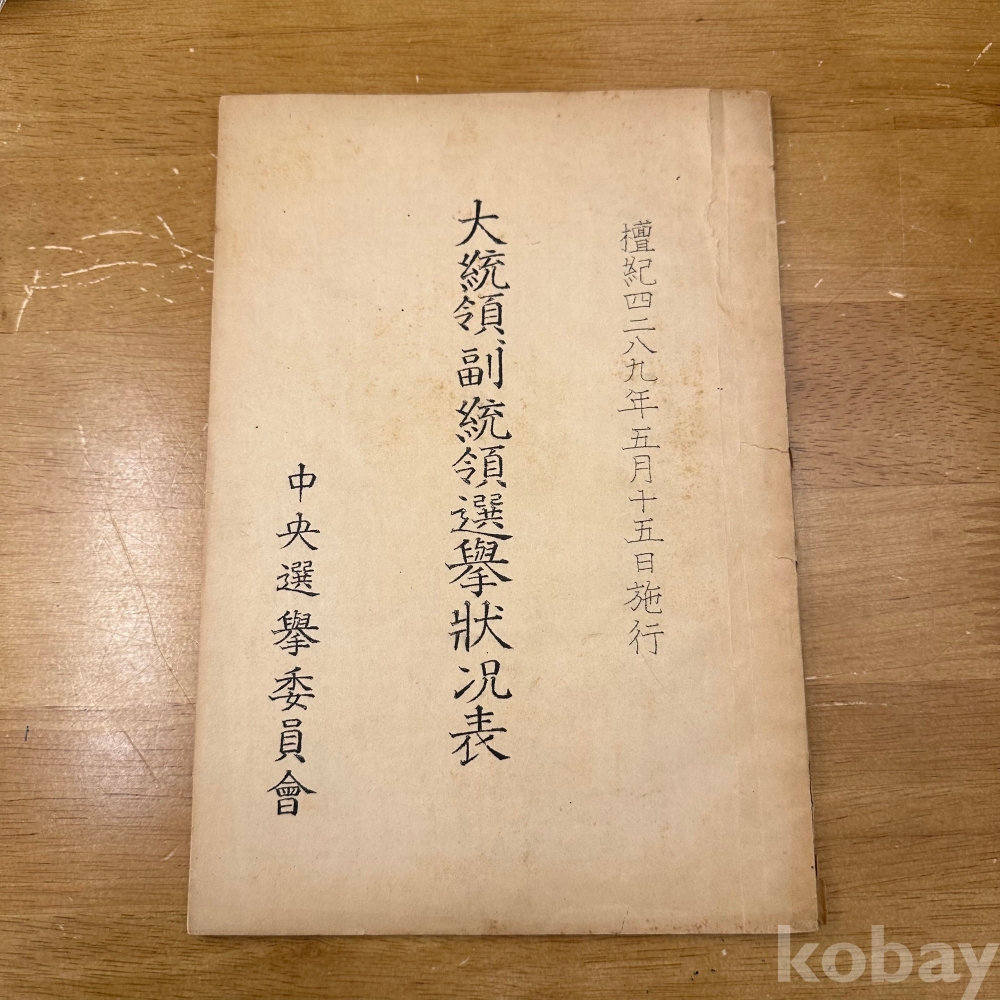 檀紀四二八九年五月十五日施行
大統領、副統領選擧狀况表
中央選擧委員會
kobay